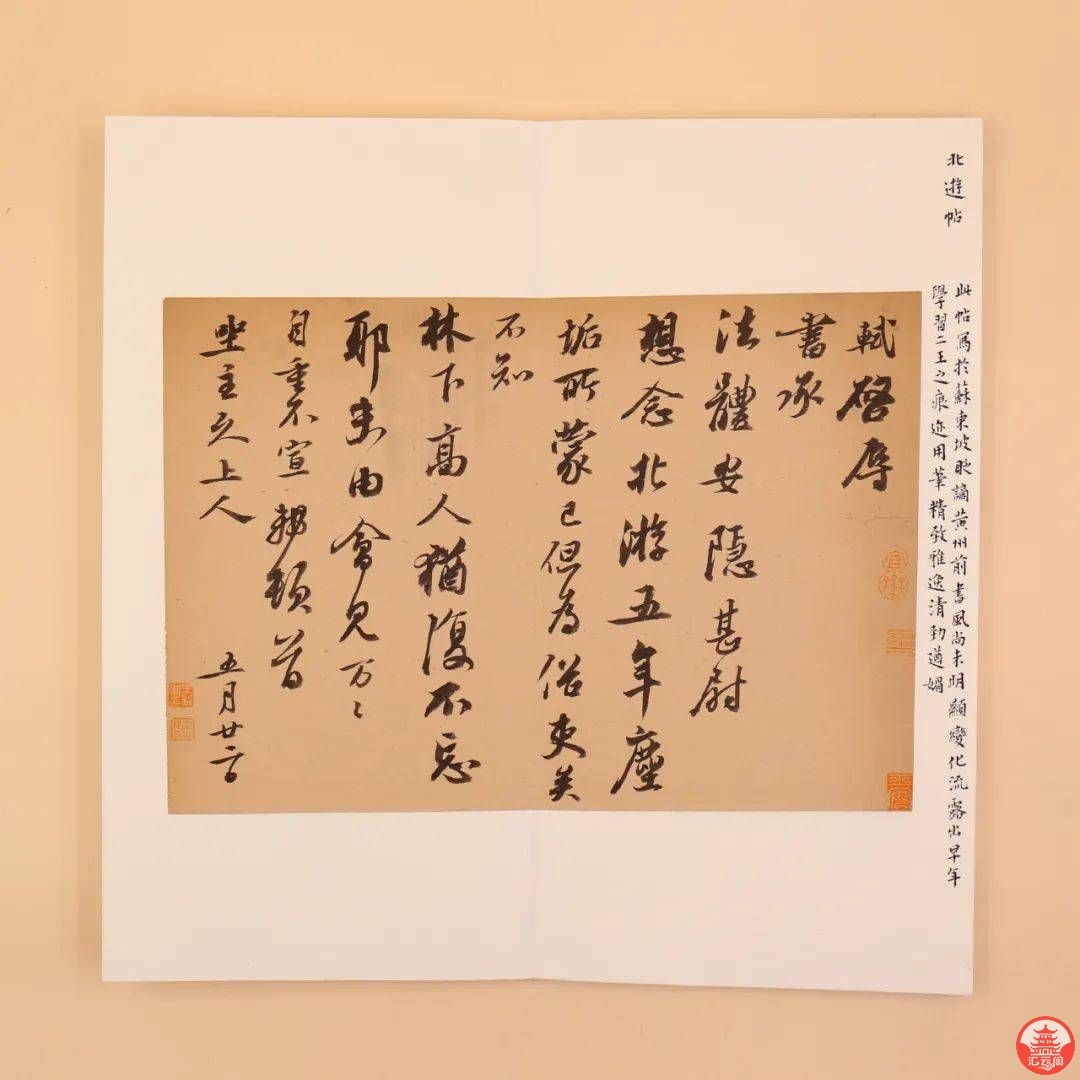 北遊帖
此帖寫於蘇東坡貶謫黃州前書風尚未明顯變化流露出早年
學習二王之痕迹用筆精緻雅逸清勁遒媚
軾啓辱
書承
法體安隱甚尉
想念北游五年塵
垢所蒙已化為俗吏矣
不知
林下高人猶復不忘
耶未由會見万〻
自重不宣 軾頓首
坐主久上人 五月廿二日
汇云阁